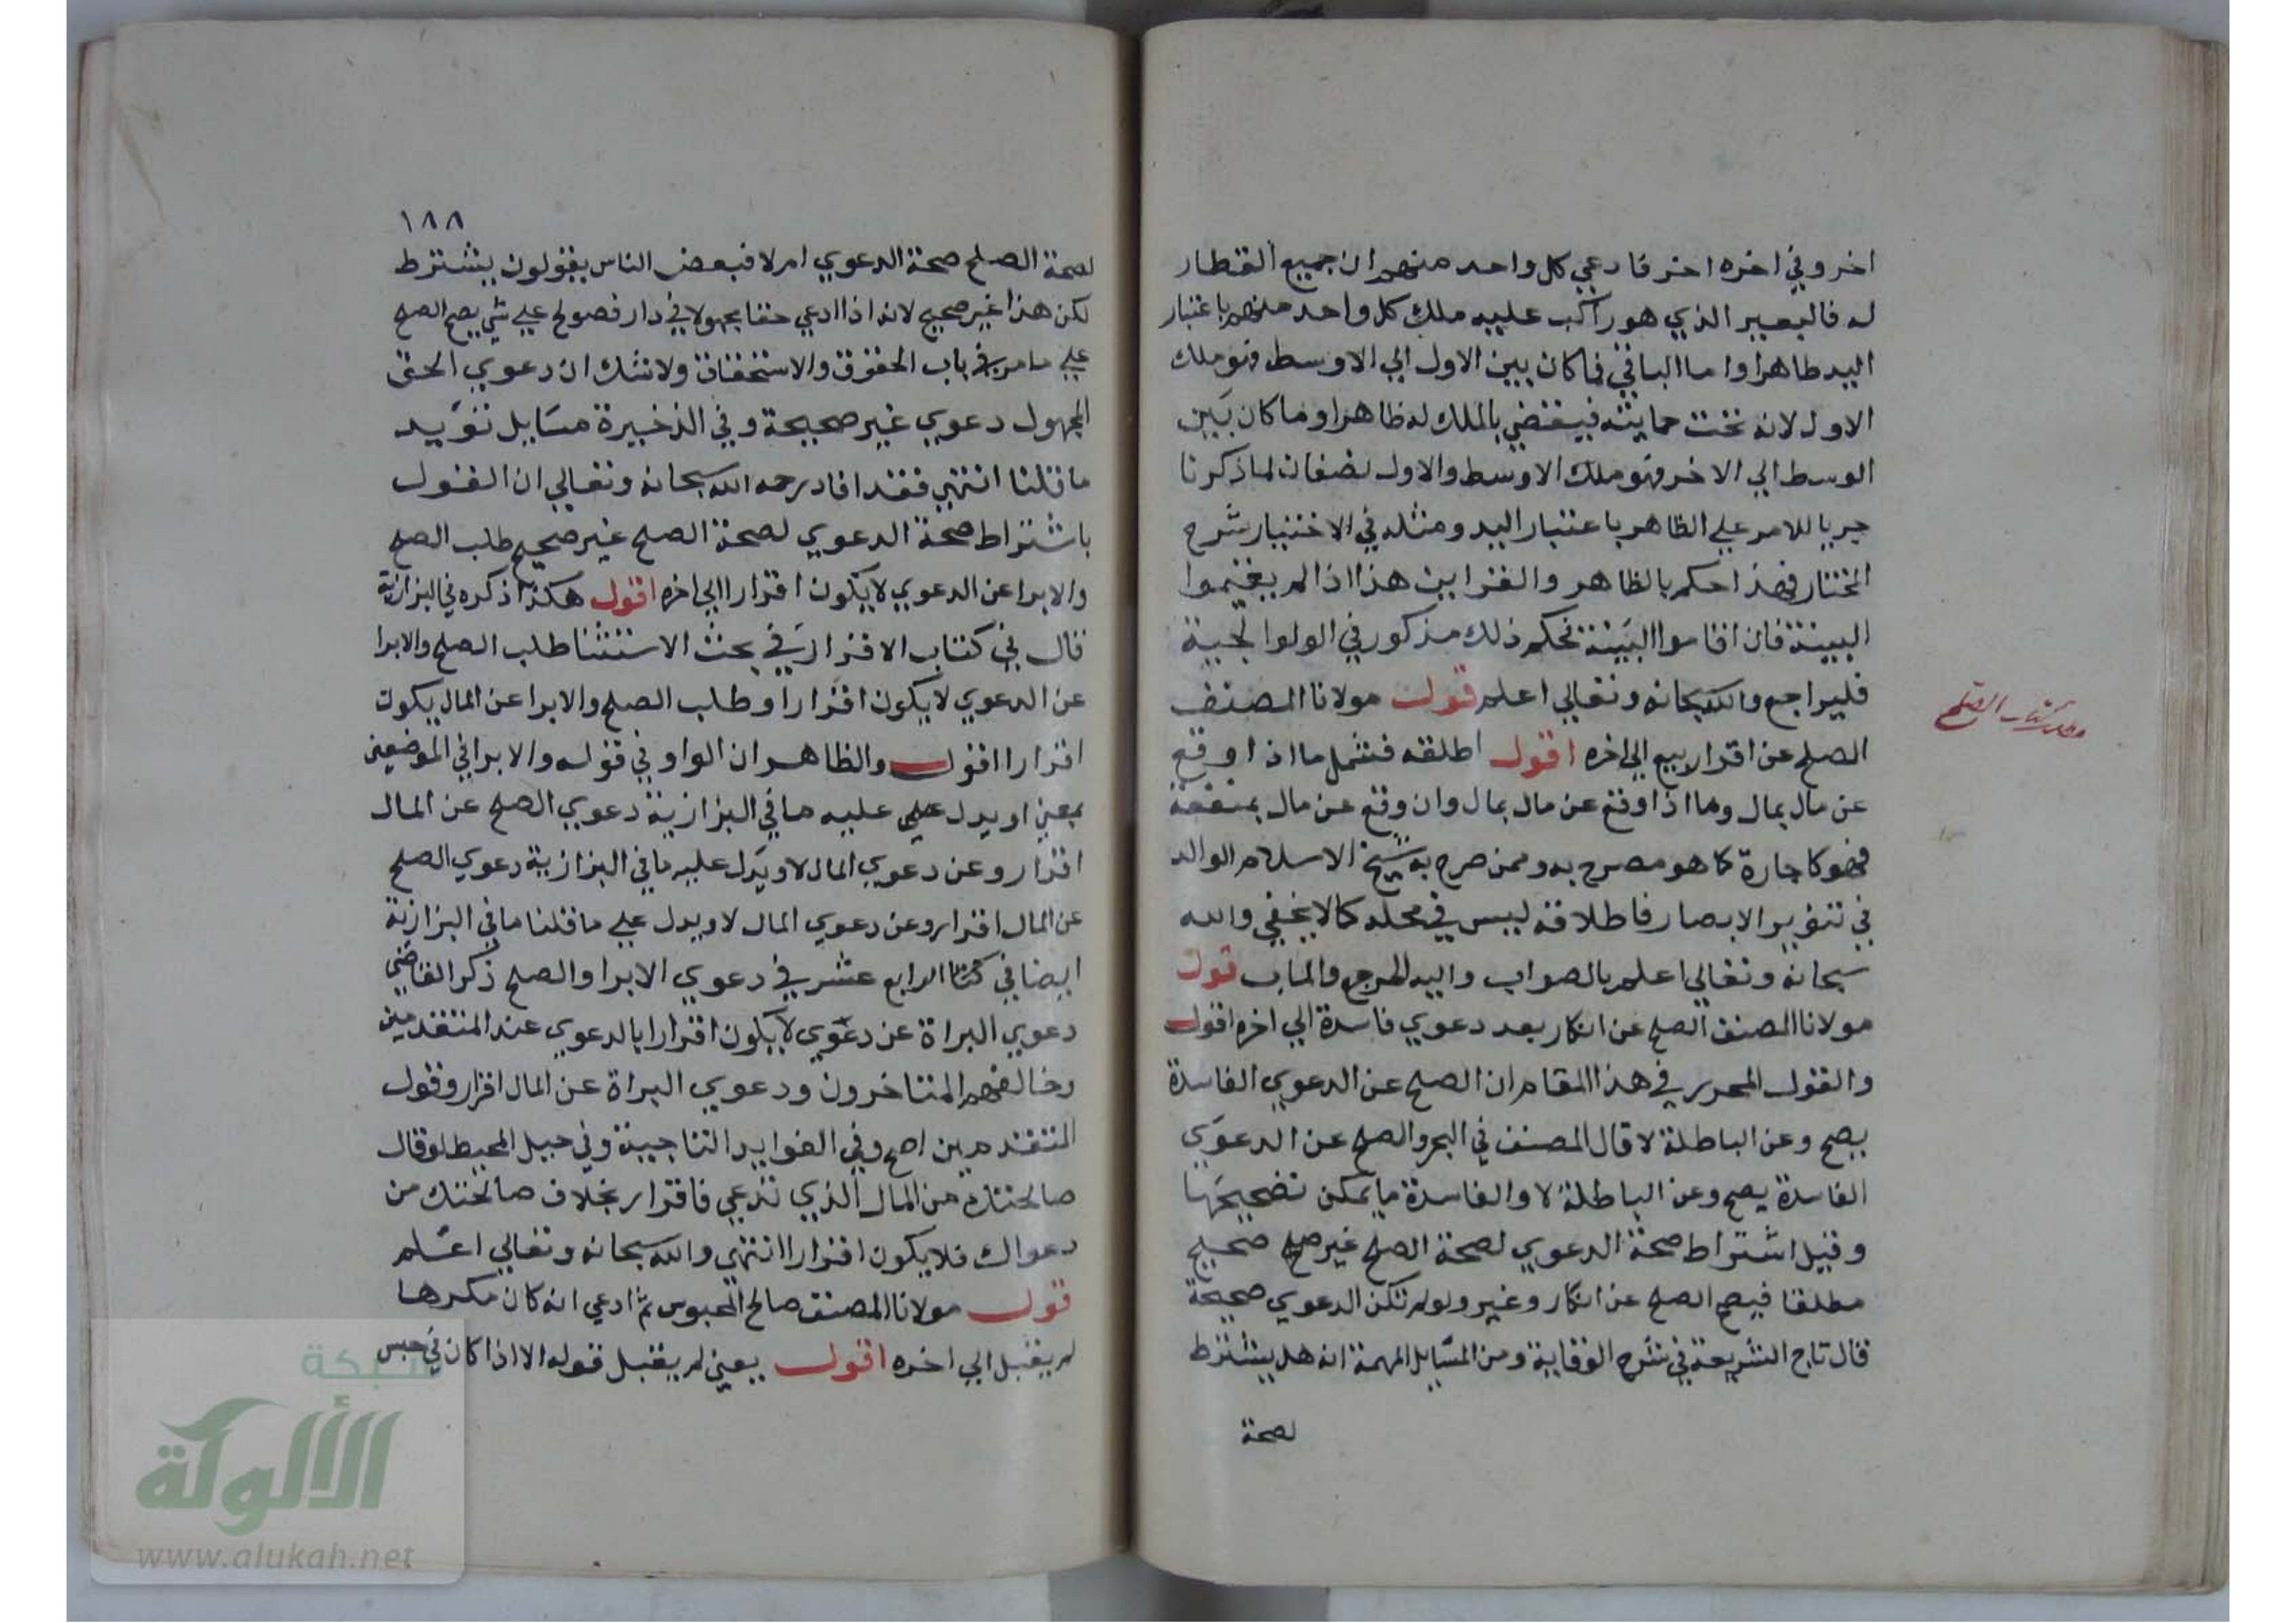 اخر وفي اخره اخر فادعي كل واحد منهم ان جميع القطار
له فالبعير الذي هو راكب عليه ملك كل واحد منهم باعتبار
اليد ظاهرا واما الباقي فما كان بين الاول الي الاوسط فهو ملك
الاول لانه تحت حمايته فيقضي بالملك له ظاهرا وما كان بين
الوسط الي الاخر فهو ملك الاوسط والاول نصفان لما ذكرنا
جريا للامر علي الظاهر باعتبار اليد ومثله في الاختيار شرح
المختار فهذا حكم بالظاهر والقراين هذا اذا لم يقيموا
البينة فان اقاموا البينة فحكم ذلك مذكور في الولوالجية
فليراجع والله سبحانه وتعالي اعلم قول مولانا المصنف
كتاب الصلح
الصلح عن اقرار بيع الي اخره اقول اطلقه فشمل ما اذا وقع
عن مال بمال وما اذا وقع عن مال بمال وان وقع عن مال بمنفعة
فهو كاجارة كما هو مصرح به وممن صرح به شيخ الاسلام الوالد
في تنوير الابصار فاطلاقه ليس في محله كما لا يخفي والله
سبحانه وتعالي اعلم بالصواب واليه المرجع والماب قول
مولانا المصنف الصلح عن انكار بعد دعوي فاسدة الي اخره اقول
والقول المحرر في هذا المقام ان الصلح عن الدعوي الفاسدة
يصح وعن الباطلة لا قال المصنف في البحر والصلح عن الدعوي
الفاسدة يصح وعن الباطلة لا والفاسدة ما يمكن تصحيحها
وقيل اشتراط صحة الدعوي لصحة الصلح غير صلح صحيح
مطلقا فيصح الصلح عن انكار وغير ولو لم تكن الدعوي صحيحة
قال تاج الشريعة في شرح الوقاية ومن المسايل المهمة انه هل يشترط
لصحة
١٨٨
لصحة الصلح صحة الدعوي ام لا فبعض الناس يقولون يشترط
لكن هذا غير صحيح لانه اذا ادعي حقا مجهولا في دار فصولح علي شي يصح الصلح
علي ما مر في باب الحقوق والاستحقاق ولا شك ان دعوي الحق
المجهول دعوي غير صحيحة وفي الذخيرة مسايل تؤيد
ما قلنا انتهي فقد افاد رحمه الله سبحانه وتعالي ان القول
باشتراط صحة الدعوي لصحة الصلح غير صحيح طلب الصلح
والابرا عن الدعوي لا يكون اقرارا الي اخره اقول هكذا ذكره في البزازية
قال في كتاب الاقرار في بحث الاستثنا طلب الصلح والابرا
عن الدعوي لا يكون اقرارا وطلب الصلح والابرا عن المال يكون
اقرارا اقول والظاهر ان الواو في قوله والابرا في الموضعين
بمعني او يدل علي عليه ما في البزازية دعوي الصلح عن المال
اقرار وعن دعوي المال لا ويدل عليه ما في البزازية دعوي الصلح
عن المال اقرار وعن دعوي المال لا ويدل علي ما قلنا ما في البزازية
ايضا في الرابع عشر في دعوي الابرا والصلح ذكر القاضي
دعوي البراة عن دعوي لا يكون اقرارا بالدعوي عند المتقدمين
وخالفهم المتاخرون ودعوي البراة عن المال اقرار وقول
المتقدمين اصح وفي الفوايد التاجية وفي حيل المحيط لو قال
صالحتك من المال الذي تدعي فاقرار بخلاف صالحتك من
دعواك فلا يكون اقرارا انتهي والله سبحانه وتعالي اعلم
قول مولانا المصنف صالح المحبوس ثم ادعي انه كان مكرها
لم يقبل الي اخره اقول يعني لم يقبل قوله الا اذا كان في حبس
شبكة
الألوكة
www.alukah.net